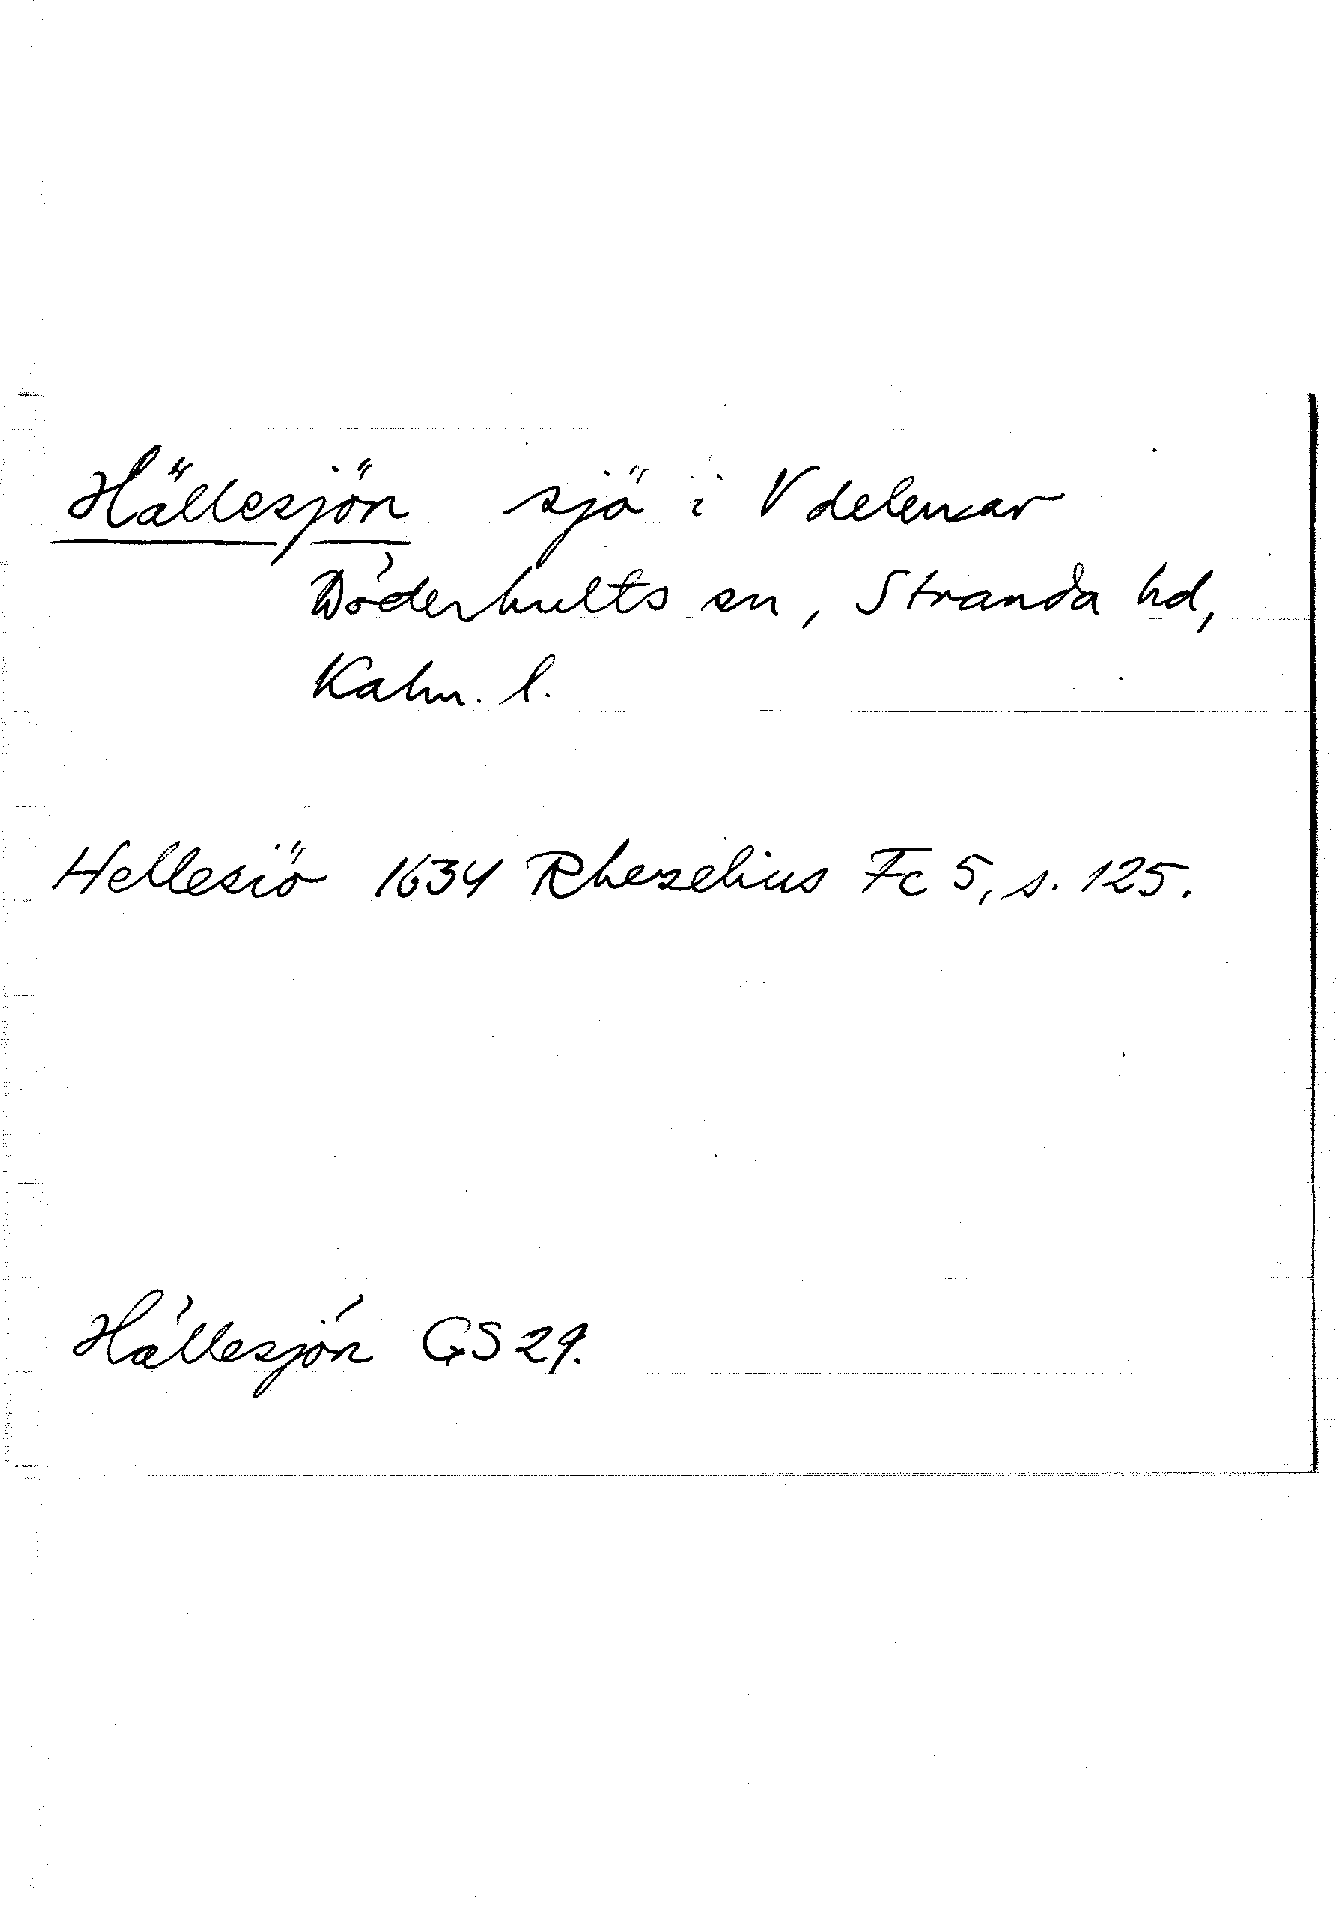 Hällesjön sjö i V delen av
Döderhults sn, Stranda hd,
Kalm. l.
Hellesiö 1634 Rhezelius Fc 5, s. 125.
Hällesjön GS 29.